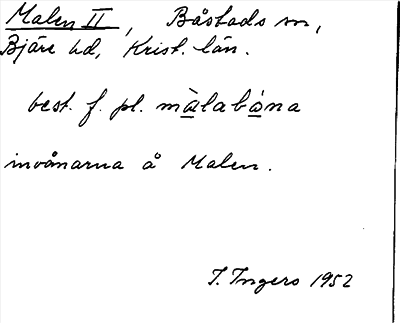 Malen II, Båstads sn,
Bjäre hd, Krist. län.
best. f. pl. màlabòna
invånarna å Malen.
I. Ingers 1952